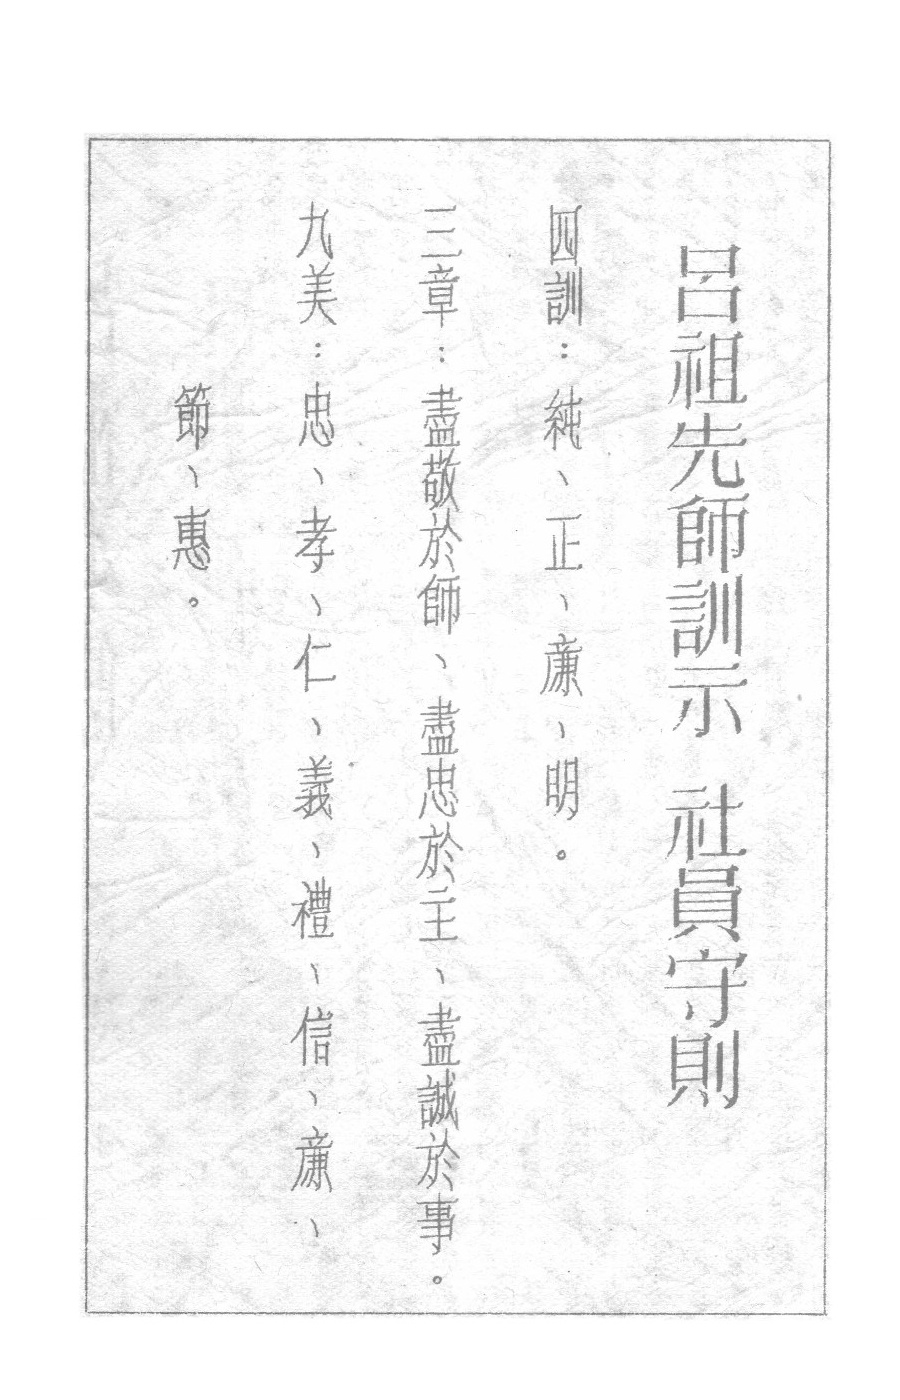 呂祖先師訓示 社員守則
四訓：純、正、廉、明。
三章：盡敬於師、盡忠於主、盡誠於事。
九美：忠、孝、仁、義、禮、信、廉、
節、惠。